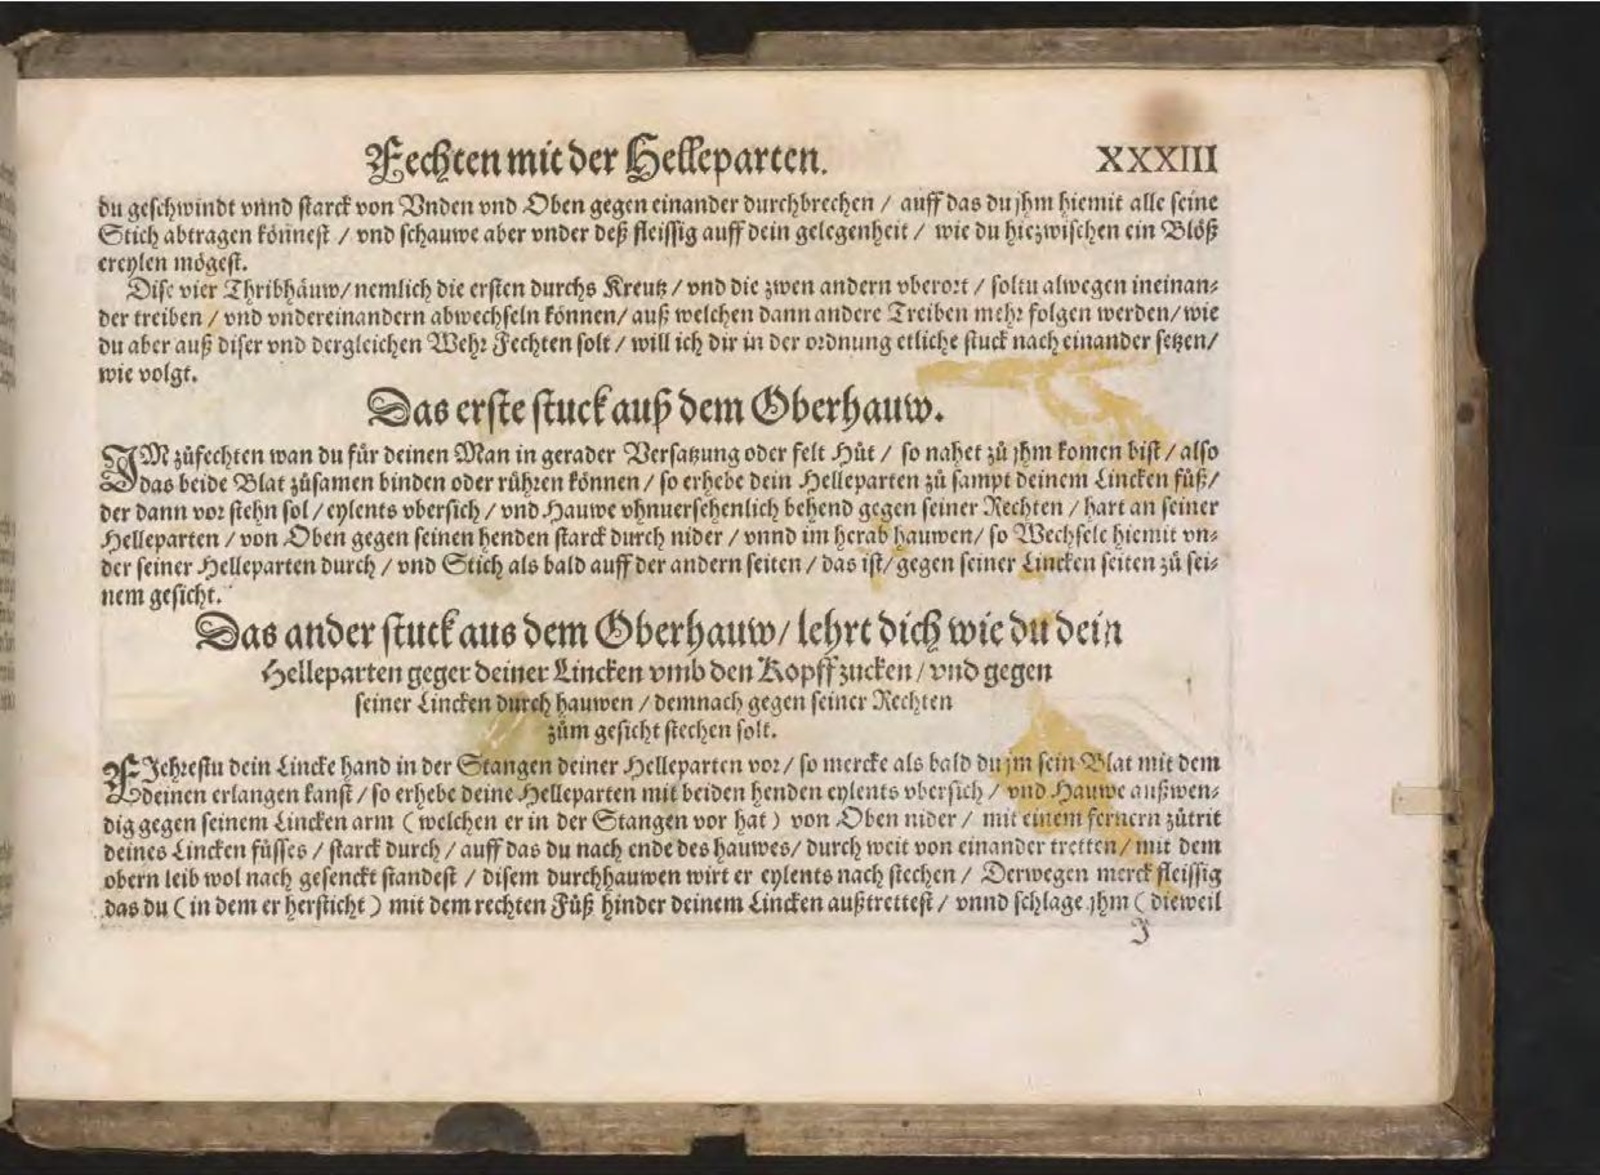 Fechten mit der Helleparten. XXXIII
du geschwindt vnnd starck von Vnden vnd Oben gegen einander durchbrechen / auff das du jhm hiemit alle seine
Stich abtragen könnest / vnd schauwe aber vnder deß fleissig auff dein gelegenheit / wie du hiezwischen ein Blöß
ereylen mögest.
Dise vier Thribhäuw / nemlich die ersten durchs Kreutz / vnd die zwen andern vberort / soltu alwegen ineinan⸗
der treiben / vnd vndereinandern abwechseln können / auß welchen dann andere Treiben mehr folgen werden / wie
du aber auß diser vnd dergleichen Wehr Fechten solt / will ich dir in der ordnung etliche stuck nach einander setzen /
wie volgt.
Das erste stuck auß dem Oberhauw.
IM zůfechten wan du für deinen Man in gerader Versatzung oder felt Hůt / so nahet zů jhm komen bist / also
das beide Blat zůsamen binden oder rühren können / so erhebe dein Helleparten zů sampt deinem Lincken fůß /
der dann vor stehn sol / eylents vbersich / vnd Hauwe vhnuersehenlich behend gegen seiner Rechten / hart an seiner
Helleparten / von Oben gegen seinen henden starck durch nider / vnnd im herab hauwen / so Wechsele hiemit vn⸗
der seiner Helleparten durch / vnd Stich als bald auff der andern seiten / das ist / gegen seiner Lincken seiten zů sei⸗
nem gesicht.
Das ander stuck aus dem Oberhauw / lehrt dich wie du dein
Helleparten geger deiner Lincken vmb den Kopff zucken / vnd gegen
seiner Lincken durch hauwen / demnach gegen seiner Rechten
zům gesicht stechen solt.
FJehrestu dein Lincke hand in der Stangen deiner Helleparten vor / so mercke als bald du jm sein Blat mit dem
deinen erlangen kanst / so erhebe deine Helleparten mit beiden henden eylents vbersich / vnd Hauwe außwen⸗
dig gegen seinem Lincken arm ( welchen er in der Stangen vor hat ) von Oben nider / mit einem fernern zůtrit
deines Lincken füsses / starck durch / auff das du nach ende des hauwes / durch weit von einander tretten / mit dem
obern leib wol nach gesenckt standest / disem durchhauwen wirt er eylents nach stechen / Derwegen merck fleissig
das du ( in dem er hersticht ) mit dem rechten Fůß hinder deinem Lincken außtrettest / vnnd schlage jhm ( dieweil
J